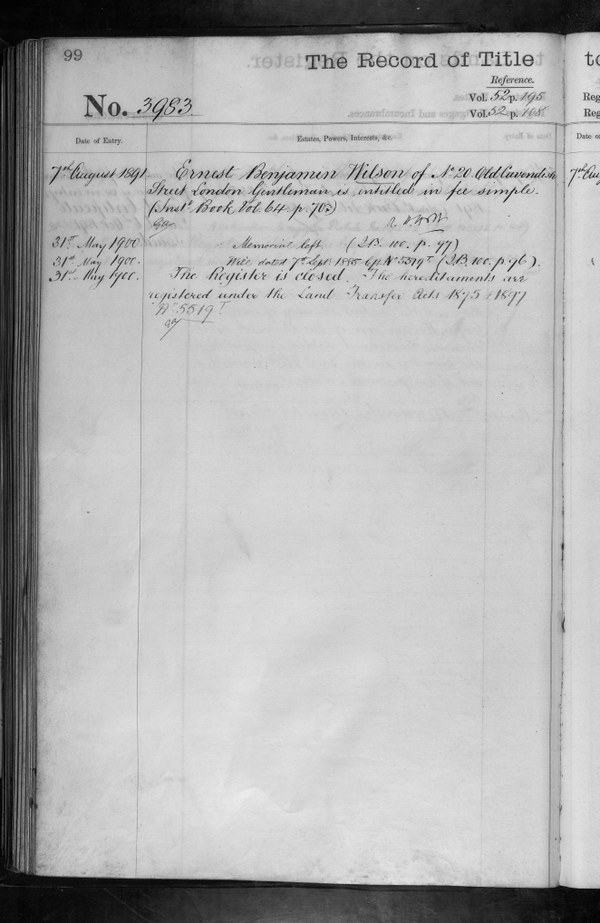 99
The Record of Title
Reference.
Vol. 52 p. 195
No. 3983
Vol. 52 p. 108
Date of Entry.
Estates, Powers, Interests, &c.
7th August 1891 Ernest Benjamin Wilson of No 20 Old Cavendish
Street London Gentleman is entitled in fee simple.
(Inst. Book Vol. 64 p. 703)
31st May 1900. Memorial left (I.B. 100. p. 97)
31st May 1900. Will dated 7th Sept 1885 (I.B. 100. p. 96).
31st May 1900. The Register is closed. The hereditaments are
registered under the Land Transfer Acts 1875 & 1897
No 5519 T
to
Reg
Reg
Date o
7th Aug